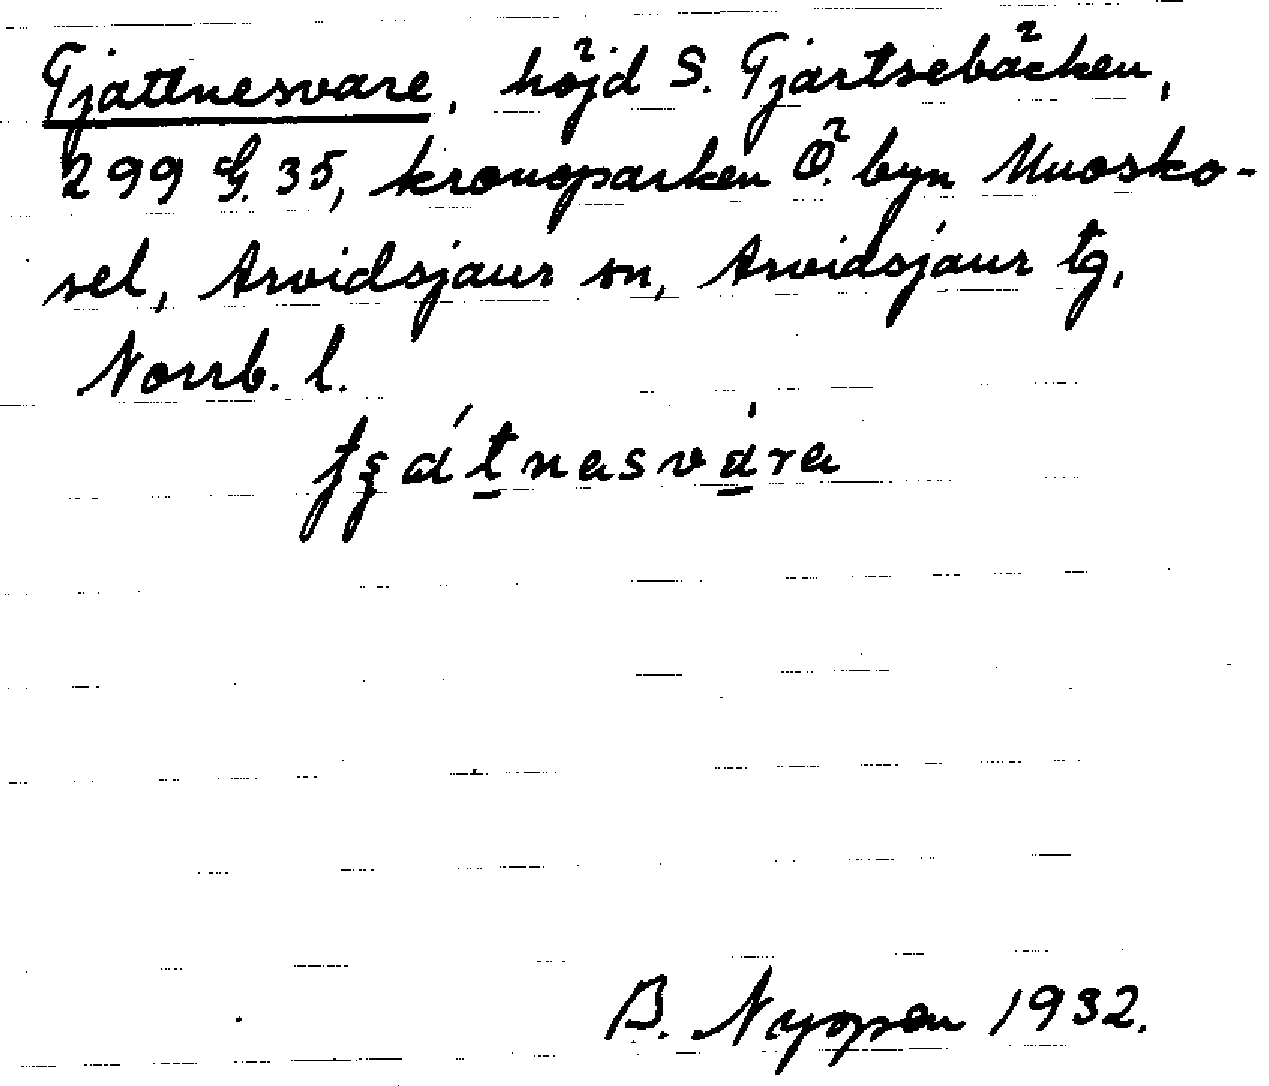 Tjattnesvare, höjd S. Tjartsebäcken,
299 G. 35, kronoparken Ö. byn Muosko-
sel, Arvidsjaur sn, Arvidsjaur tg,
Norrb. l.
B. Nyopen 1932.